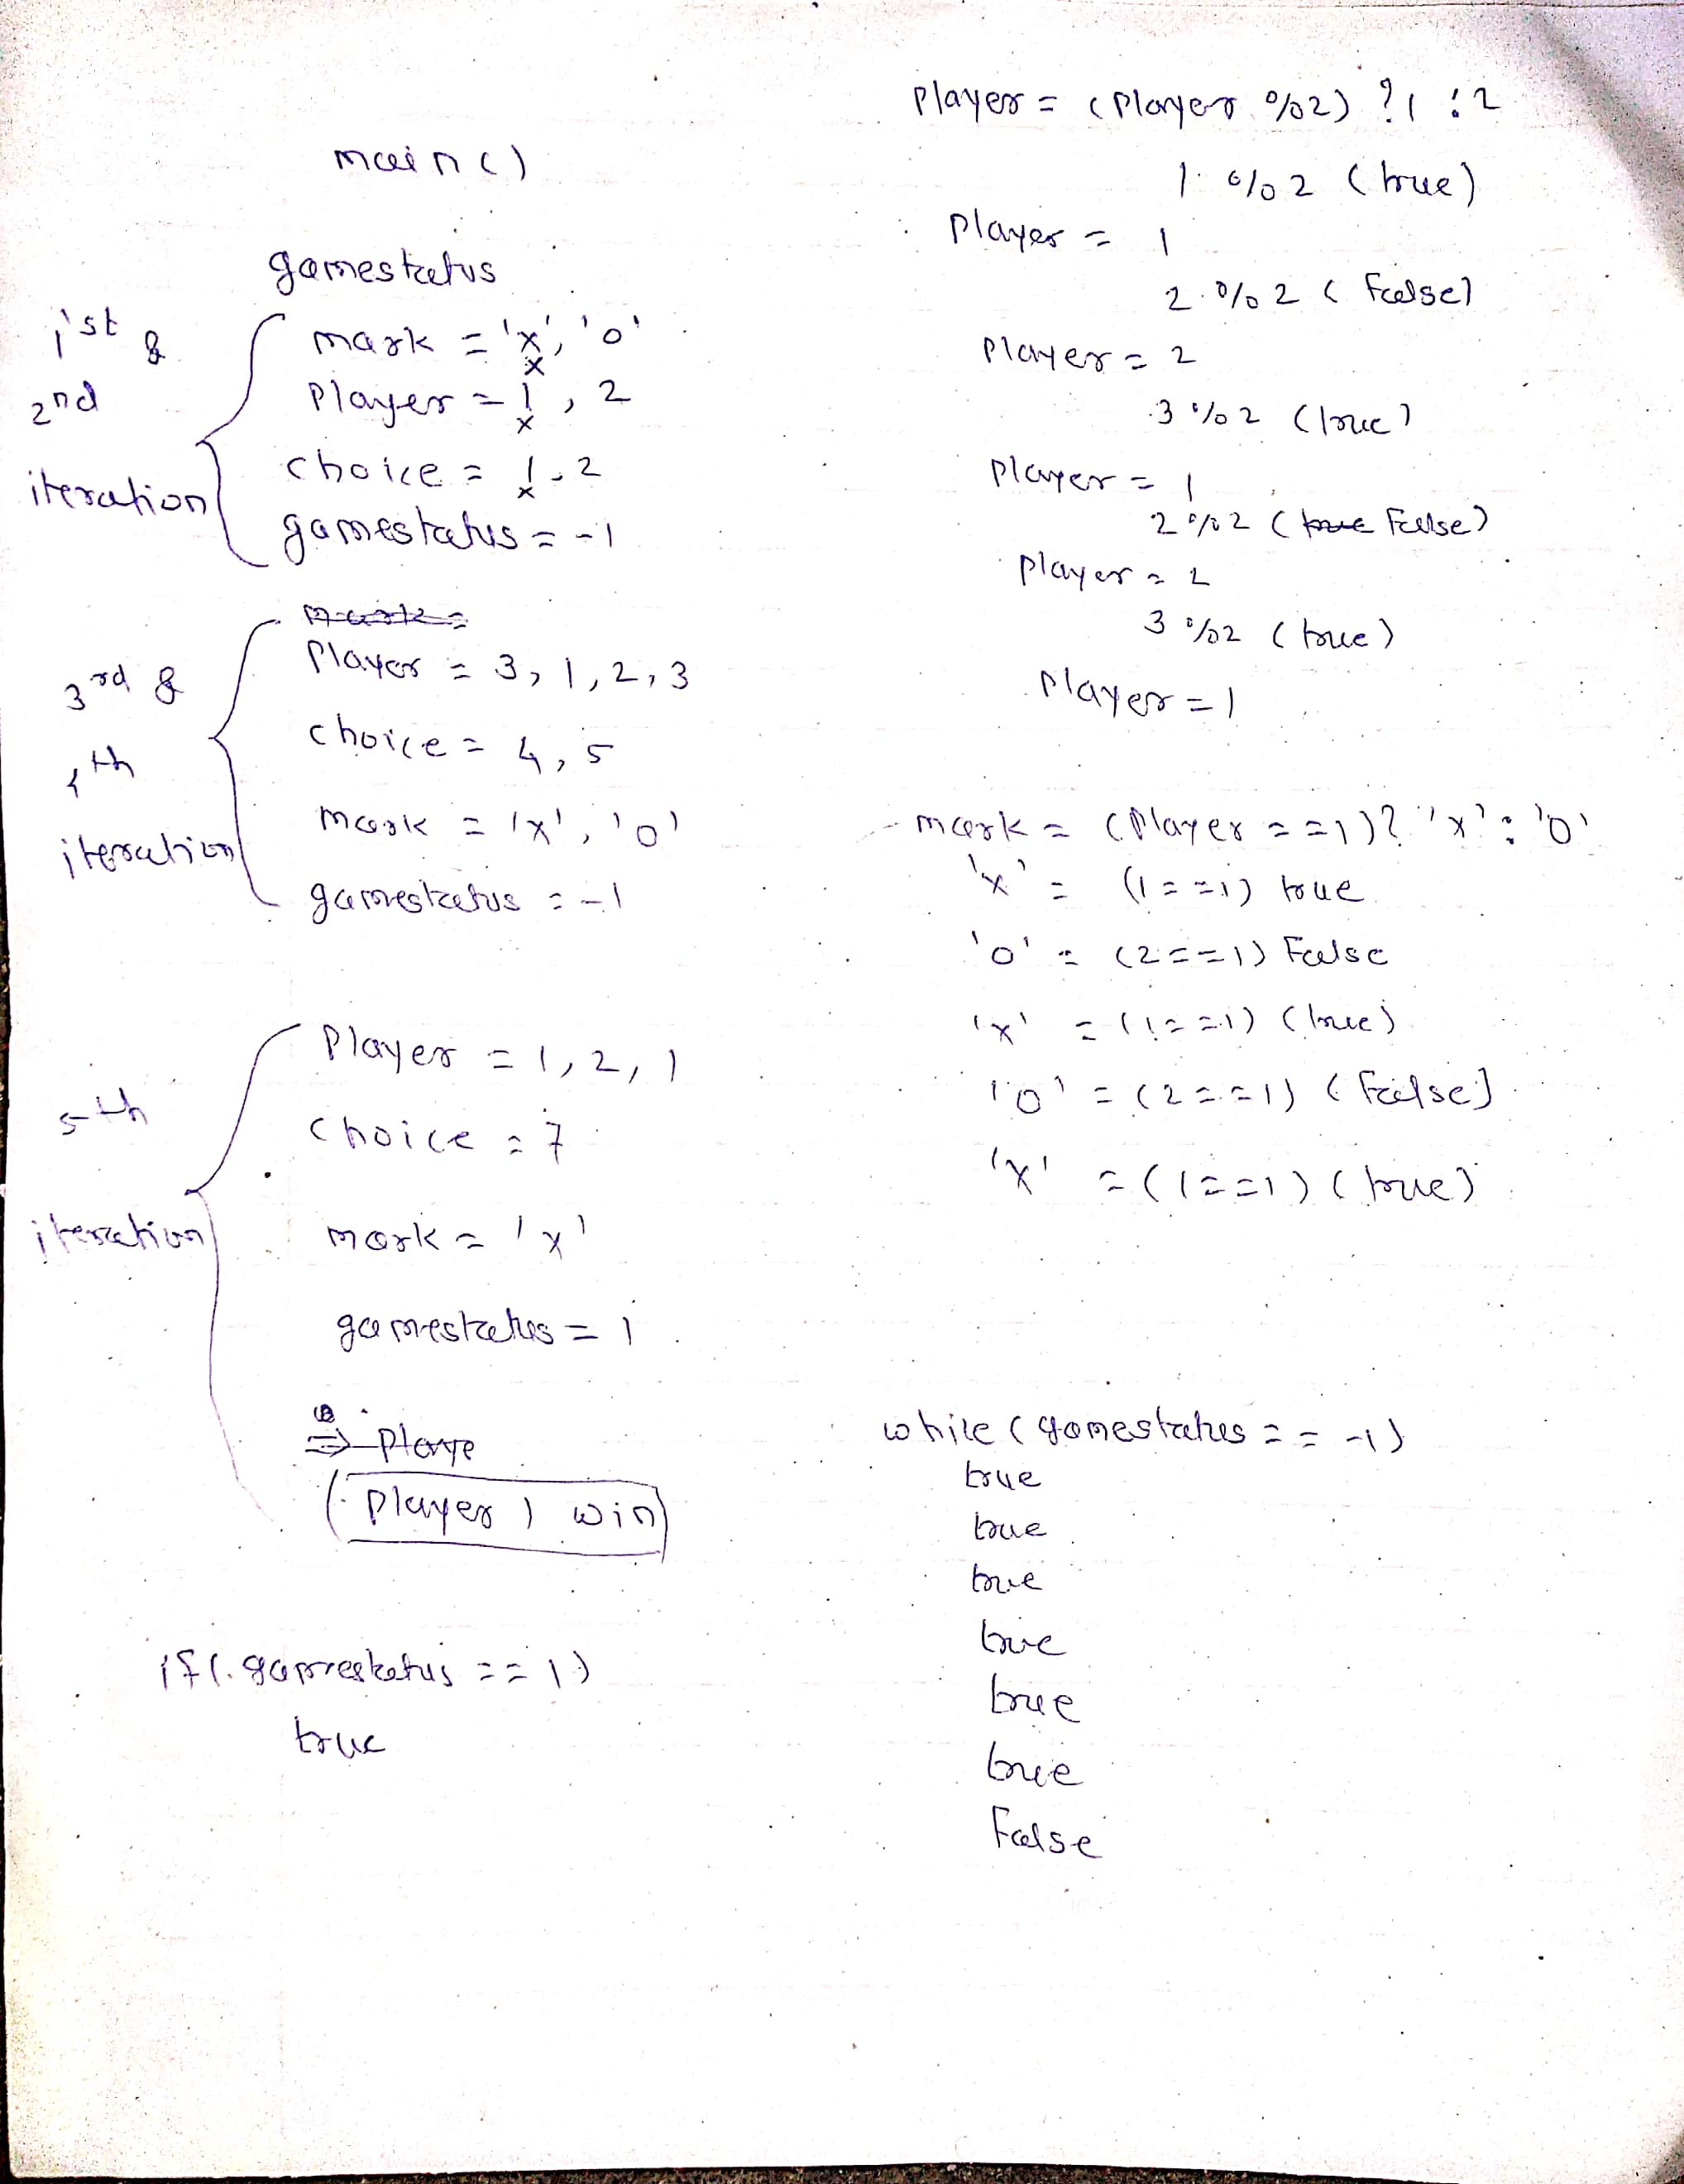 main()
gamestatus
1st &
2nd
iteration
mark = 'x', 'o'
x
Player = 1, 2
x
choice = 1, 2
x
gamestatus = -1
mark =
3rd &
4th
iteration
Player = 3, 1, 2, 3
choice = 4, 5
mark = 'x', 'o'
gamestatus = -1
5th
iteration
Player = 1, 2, 1
choice = 7
mark = 'x'
gamestatus = 1
⇒ Playe
Player 1 win
if(gamestatus == 1)
true
Player = (Player %2) ? 1 : 2
1 % 2 (true)
Player = 1
2 % 2 (False)
Player = 2
3 % 2 (true)
Player = 1
2 % 2 (true False)
Player = 2
3 % 2 (true)
Player = 1
mark = (Player == 1) ? 'x' : 'o'
'x' = (1 == 1) true
'o' = (2 == 1) False
'x' = (1 == 1) (true)
'o' = (2 == 1) (False)
'x' = (1 == 1) (true)
while (gamestatus == -1)
true
true
true
true
true
true
False